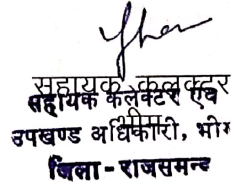 सहायक कलेक्टर
सहायक कलेक्टर एवं
भीम
उपखण्ड अधिकारी, भीम
जिला - राजसमन्द